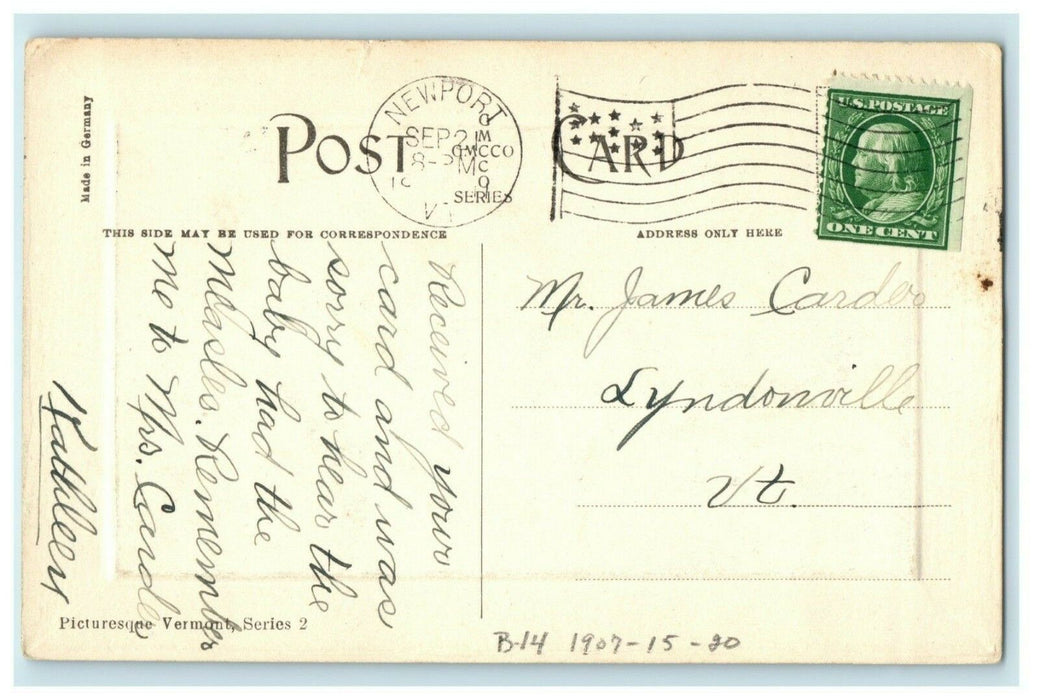 Made in Germany
POST CARD
NEWPORT
SEP 21
8-PM
19
VT
GMCCO
SERIES
U.S. POSTAGE
ONE CENT
THIS SIDE MAY BE USED FOR CORRESPONDENCE
ADDRESS ONLY HERE
Received your
card and was
sorry to hear the
baby had the
Measles. Remember
me to Mrs. Carder
Kathleen
Mr. James Carder
Lyndonville
Vt.
Picturesque Vermont, Series 2
B-14 1907-15-20